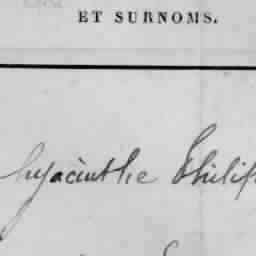 ET SURNOMS.
hyacinthe Philip